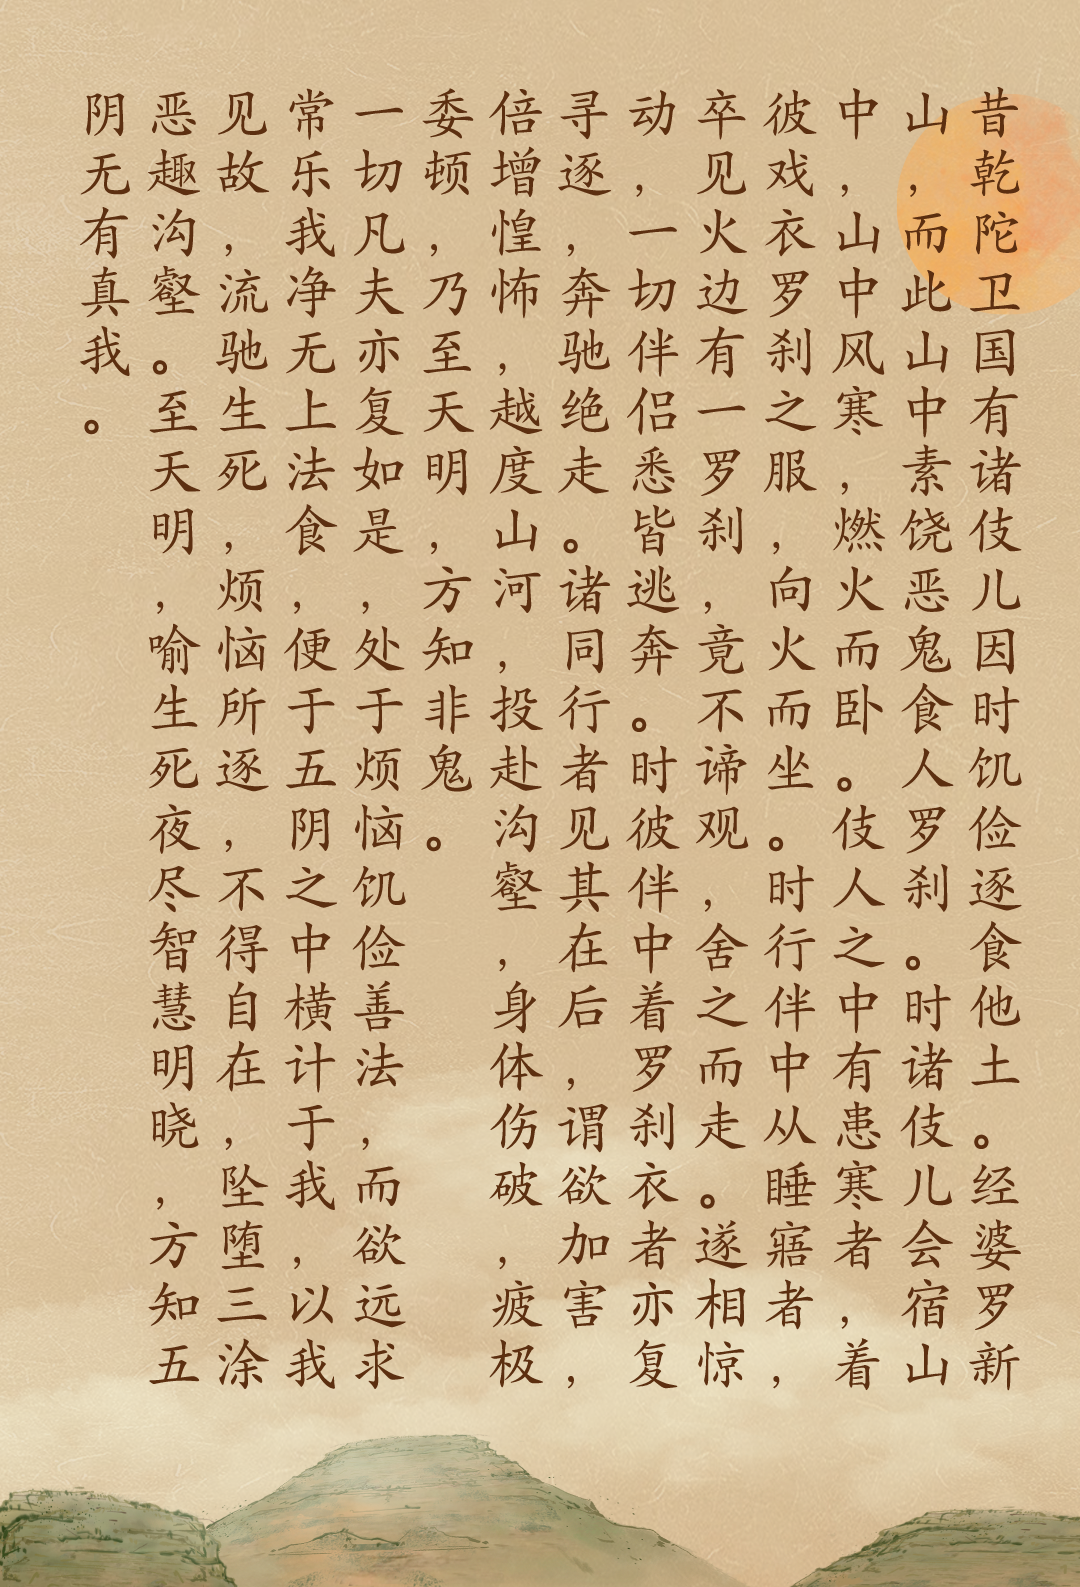 昔乾陀卫国有诸伎儿因时饥俭逐食他土。经婆罗新
山，而此山中素饶恶鬼食人罗刹。时诸伎儿会宿山
中，山中风寒，燃火而卧。伎人之中有患寒者，着
彼戏衣罗刹之服，向火而坐。时行伴中从睡寤者，
卒见火边有一罗刹，竟不谛观，舍之而走。遂相惊
动，一切伴侣悉皆逃奔。时彼伴中着罗刹衣者亦复
寻逐，奔驰绝走。诸同行者见其在后，谓欲加害，
倍增惶怖，越度山河，投赴沟壑，身体伤破，疲极
委顿，乃至天明，方知非鬼。
一切凡夫亦复如是，处于烦恼饥俭善法，而欲远求
常乐我净无上法食，便于五阴之中横计于我，以我
见故，流驰生死，烦恼所逐，不得自在，坠堕三涂
恶趣沟壑。至天明，喻生死夜尽智慧明晓，方知五
阴无有真我。